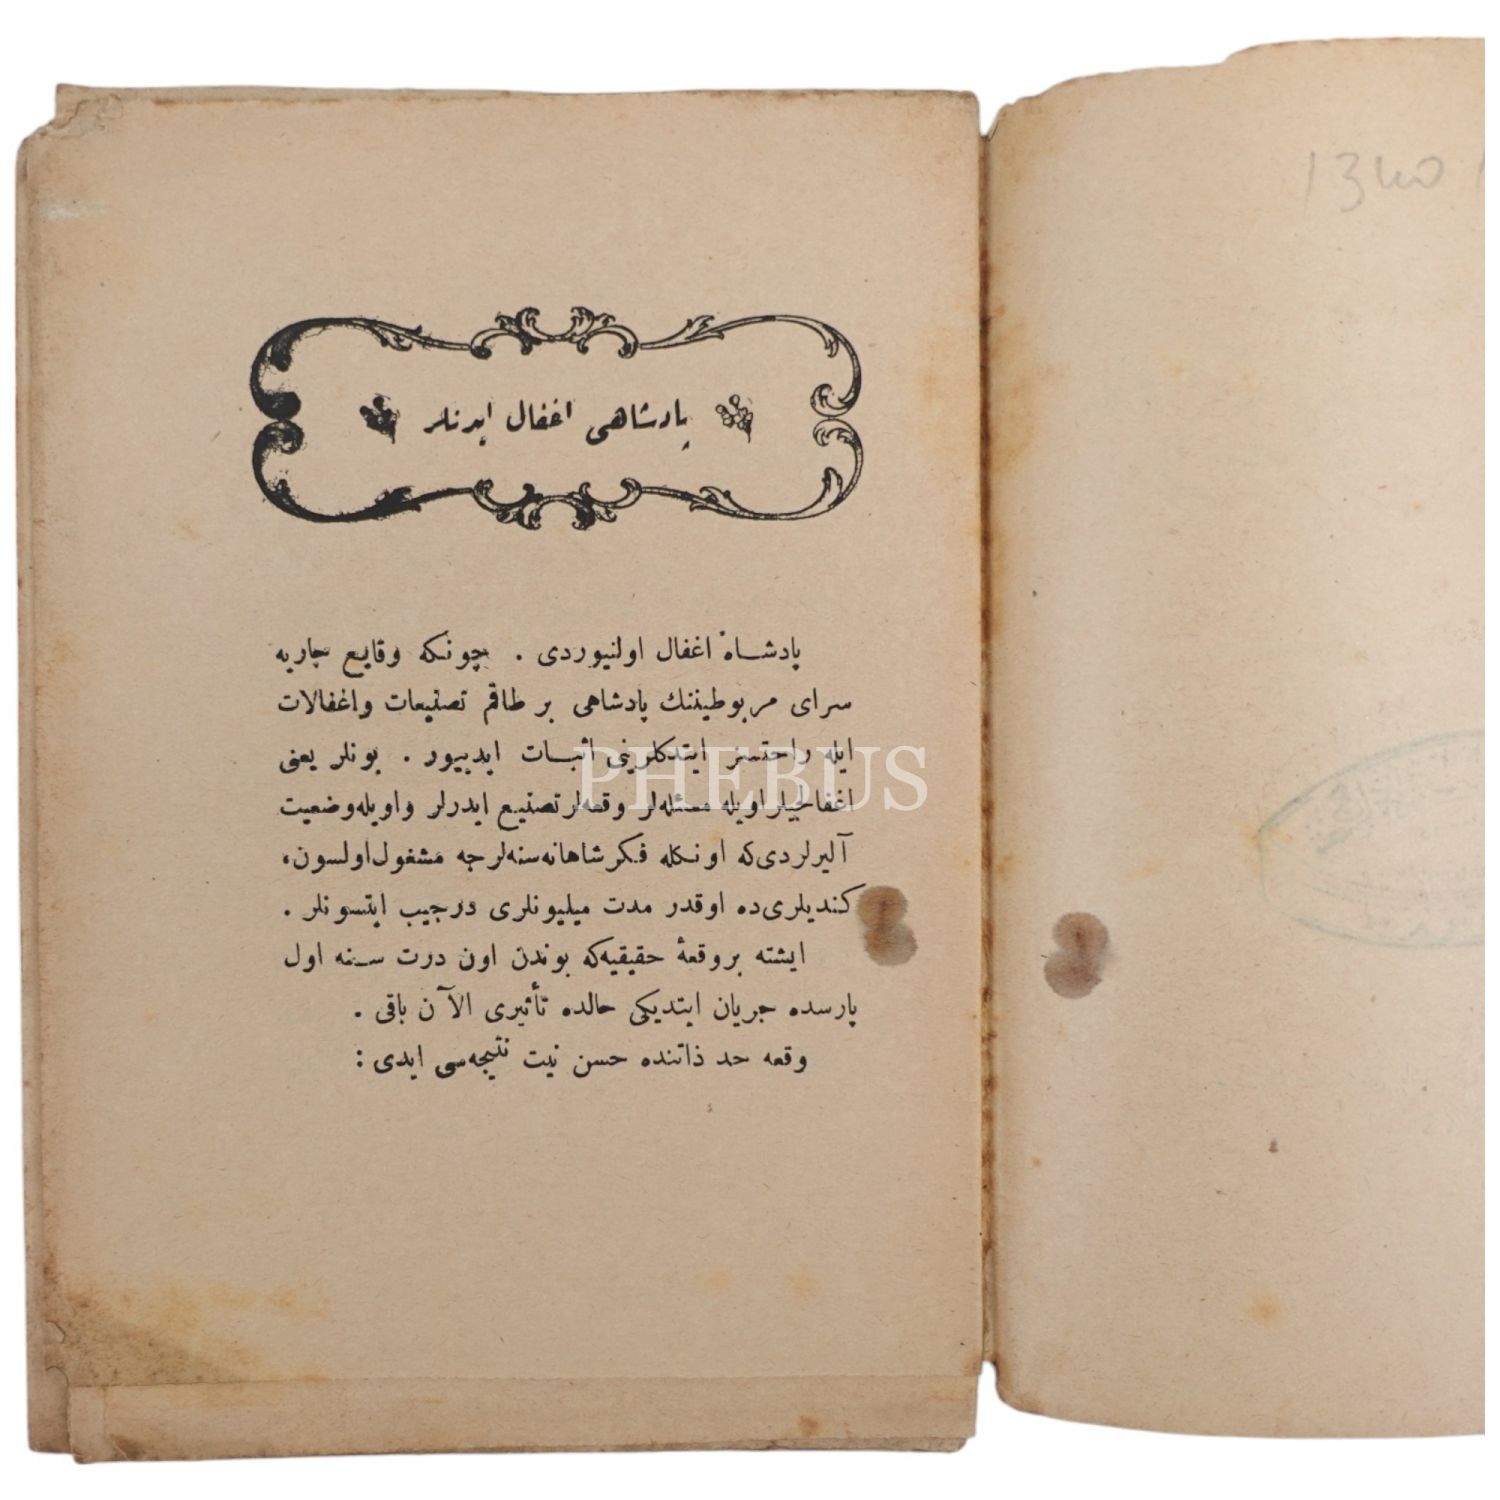 پادشاهی اغفال ایدنلر
پادشاه اغفال اولنیوردی . چونكه وقایع جاریه
سرای مربوطیننك پادشاهی بر طاقم تصنیعات واغفالات
ایله راحتسز ایتدكلرینی اثبات ایدییور . بونلر یعنی
اغفالجیلر اویله مسئله‌لر وقعه‌لر تصنیع ایدرلر واویله وضعیت
آلیرلردی‌كه اونكله فكر شاهانه سنه‌لرجه مشغول اولسون،
كندیلری‌ده اوقدر مدت میلیونلری درجیب ایتسونلر .
ایشته بر وقعهٔ حقیقیه‌كه بوندن اون درت سنه اول
پارسده جریان ایتدیكی حالده تأثیری الآن باقی .
وقعه حد ذاتنده حسن نیت نتیجه‌سی ایدی :
PHEBUS
1340